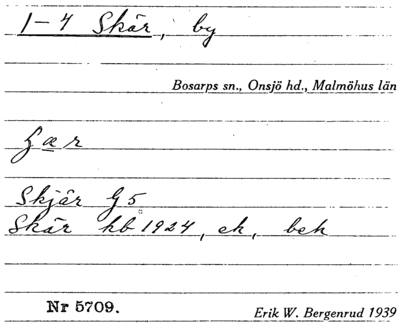 1-4 Skär, by
Bosarps sn., Onsjö hd., Malmöhus län
ʃær
Skjär G5
Skär hb 1924, ek, beh
Nr 5709.
Erik W. Bergenrud 1939